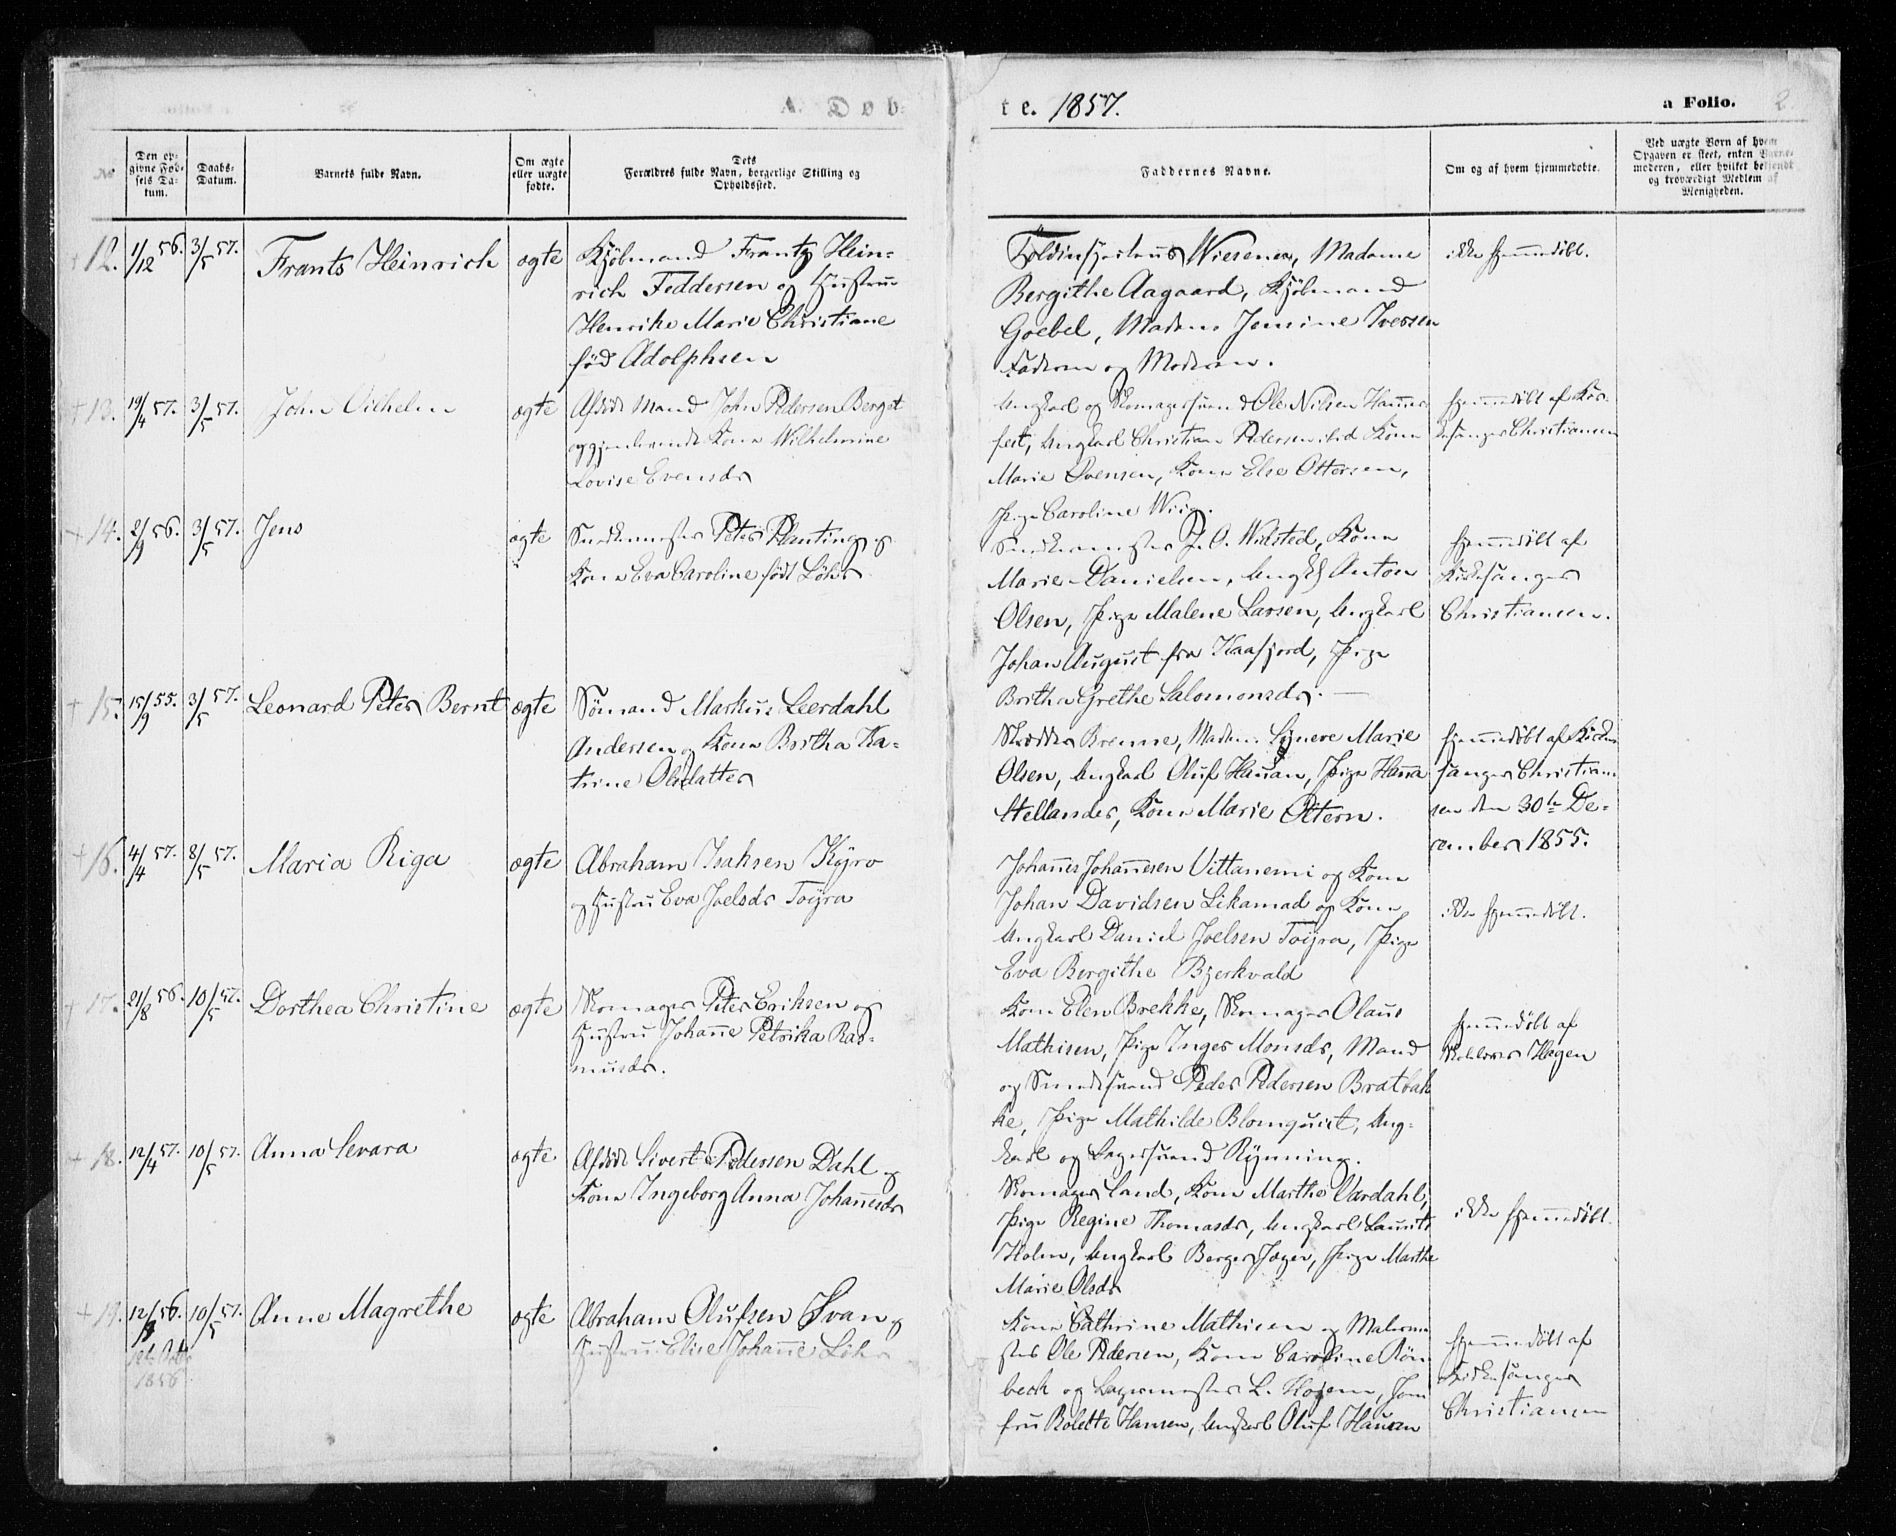 A. Døb-
te. 1857.
a Folio. 2
No
Den op-
givne Fød-
sels Da-
tum.
Daabs-
Datum.
Barnets fulde Navn.
Om ægte
eller uægte
fødte.
Dets
Forældres fulde Navn, borgerlige Stilling og
Opholdssted.
Faddernes Navne.
Om og af hvem hjemmedøbte.
Ved uægte Børn af hvem
Opgaven er skeet, enten Barne-
moderen, eller hvilket bekjendt
og troværdigt Medlem af
Menigheden.
12. 1/12 56. 3/5 57. Frants Heinrich ægte Kjöbmand Frantz Hein-
rich Feddersen og Hustrue
Henrike Marie Christiane
föd Adolphsen
Wiesener, Madame
Bergithe Aagaard, Kjöbmand
Goebel, Madame Jensine Iversen
Faderen og Moderen.
ikke hjemmedöbt.
13. 19/4 57. 3/5 57. John Vilhelm ægte Afdöde Mand John Pedersen Berget
og gjenlevende Kone Wilhelmine
Lovise Evensdr
Ungkarl og Skomagersvend Ole Nilsen Hammer-
fest, Ungkarl Christian Pedersen Kone
Marie Svensen, Kone Else Ottersen,
Pige Caroline Wiig.
hjemmedöbt af Kir-
kesanger Christiansen
14. 2/9 56. 3/5 57. Jens ægte Snedkermester Peter Planting og
Kone Eva Caroline født Löhr
Snedkermester J. O. Wilsted, Kone
Marie Danielsen, Ungk Anton
Olsen, Pige Malene Larsen, Ungkarl
Johan August fra Kaafjord, Pige
Britha Grethe Salomonsdr.
hjemmedöbt af
Kirkesanger
Christiansen.
15. 15/9 55. 3/5 57. Leonard Peter Bernt ægte Sömand Markus Leerdahl
Andersen og Kone Britha Ka-
trine Olsdatter
Skrædder Bremse, Madam Signere Marie
Olsen, Ungkarl Oluf Hauan, Pige Hanna
Stellander, Kone Marie Ottern.
hjemmedöbt af Kirke-
sanger Christian-
sen den 30te De-
cember 1855.
16. 4/4 57. 8/5 57. Maria Riga ægte Abraham Isaksen Kÿro
og Hustru Eva Joelsdr Toÿra
Johannes Johannesen Vittanemi og Kone
Johan Davidsen Likamad og Kone
Ungkarl Daniel Joelsen Toÿra, Pige
Eva Bergithe Bjerkvald
ikke hjemmedöbt.
17. 21/8 56. 10/5 57. Dorthea Christine ægte Skomager Peter Eriksen og
Hustru Johanne Petrika Ras-
musdr.
Kone Elen Brekke, Skomager Olaus
Mathisen, Pige Inger Monsdr, Mand
og Smedesvend Peder Pedersen Bratbak-
ke, Pige Mathilde Blomquist, Ung-
karl og Bagersvend Rÿnning.
hjemmedöbt af
Skolelærer Hagen
18. 12/4 57. 10/5 57. Anna Sevara ægte Afdöde Sivert Pedersen Dahl og
Kone Ingeborg Anna Johannesdr
Skomager Land, Kone Marthe Vardahl,
Pige Regine Thomasdr, Ungkarl Laurits
Holm, Ungkarl Berger Jæger, Pige Marthe
Marie Olsdr
ikke hjemmedöbt.
19. 12/9 56. 10/5 57. Anne Magrethe ægte Abraham Olufsen Svan og
Hustru Elise Johanne Löhr
1856
Kone Cathrine Mathisen og Malerme-
ster Ole Pedersen, Kone Caroline Rön-
beck og Bagermester L. Hojem, Jom-
fru Bolette Hansen, Ungkarl Oluf Hauan
hjemmedöbt af
Kirkesanger
Christiansen